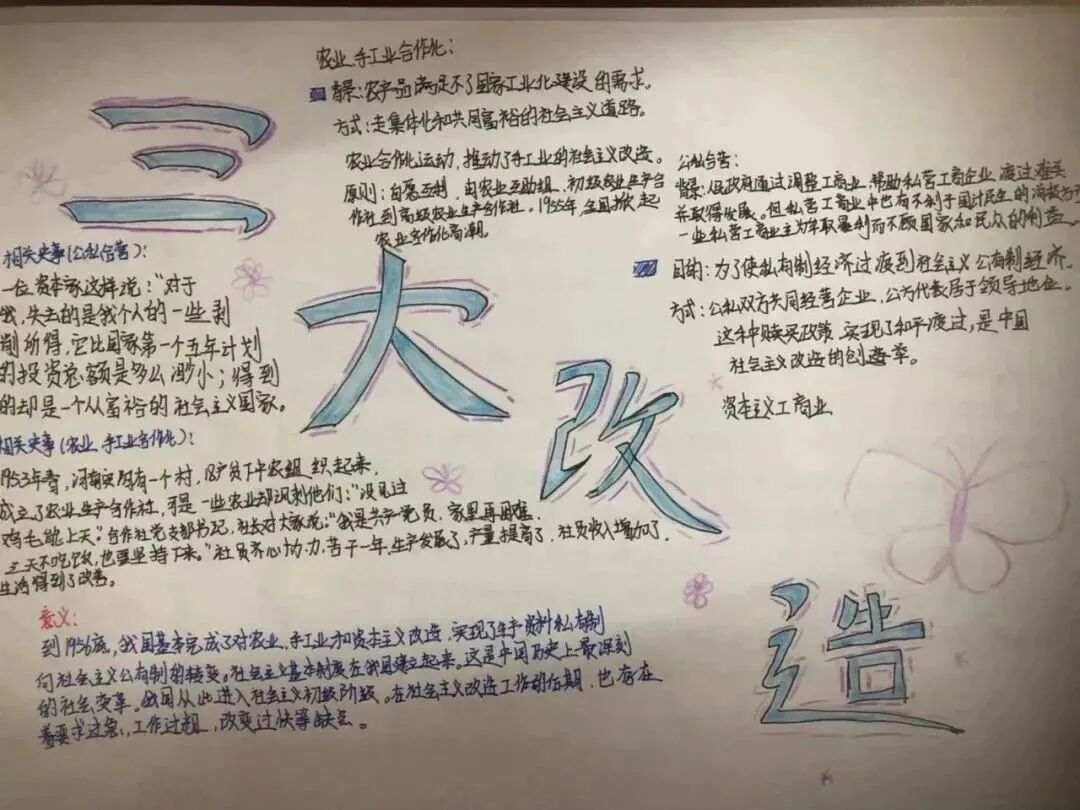 三大改造
农业、手工业合作化:
背景:农产品满足不了国家工业化建设的需求。
方式:走集体化和共同富裕的社会主义道路。
农业合作化运动,推动了手工业的社会主义改造。
原则:自愿互利,由农业互助组、初级农业生产合
作社到高级农业生产合作社。1955年,全国掀起
农业合作化高潮。
公私合营:
背景:人民政府通过调整工商业,帮助私营工商企业渡过难关
并取得发展。但私营工商业中也有不利于国计民生的消极方面
一些私营工商业主为牟取暴利而不顾国家和民众的利益。
目的:为了使私有制经济过渡到社会主义公有制经济。
方式:公私双方共同经营企业,公方代表居于领导地位。
这种赎买政策,实现了和平渡过,是中国
社会主义改造的创造举。
资本主义工商业
相关史事(公私合营):
一位资本家这样说:“对于
我,失去的是我个人的一些剥
削所得,它比国家第一个五年计划
的投资总额是多么渺小;得到
的却是一个人富裕的社会主义国家。
相关史事(农业、手工业合作化):
1953年春,河南 有一个村,18户贫下中农组织起来,
成立了农业生产合作社,可是一些农业却讽刺他们:“没见过
鸡毛能上天。”合作社党支部书记、社长对大家说:“我是共产党员,家里再困难,
三天不吃饭,也要坚持下来。”社员齐心协力,苦干一年,生产发展了,产量提高了,社员收入增加了,
生活得到了改善。
意义:
到1956底,我国基本完成了对农业、手工业和资本主义改造,实现了生产资料私有制
向社会主义公有制的转变。社会主义基本制度在我国建立起来。这是中国历史上最深刻
的社会变革。我国从此进入社会主义初级阶段。在社会主义改造工作的后期,也存在
着要求过急,工作过粗,改变过快等缺点。